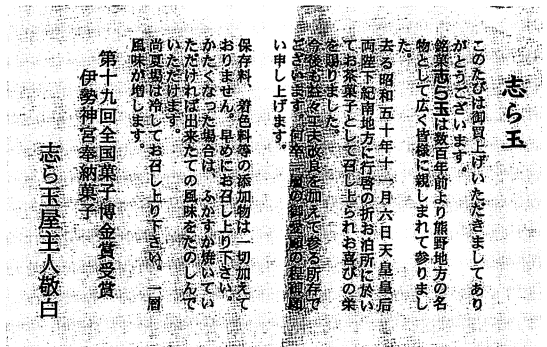 志ら玉
このたびは御買上げいただきましてあり
がとうございます。
銘菓志ら玉は数百年前より熊野地方の名
物として広く皆様に親しまれて参りまし
た。
去る昭和五十年十一月六日天皇皇后
両陛下紀南地方に行啓の折お泊所に於い
てお茶菓子として召し上られお喜びの栄
を賜りました。
今後も益々工夫改良を加えて参る所存で
ございます。何卒一層の御愛顧の程御願
い申し上げます。
保存料、着色料等の添加物は一切加えて
おりません。早めにお召し上り下さい。
かたくなった場合は、ふかすか焼いてい
ただければ出来たての風味をたのしんで
いただけます。
尚夏場は冷してお召し上り下さい。一層
風味が増します。
第十九回全国菓子博金賞受賞
伊勢神宮奉納菓子
志ら玉屋主人敬白